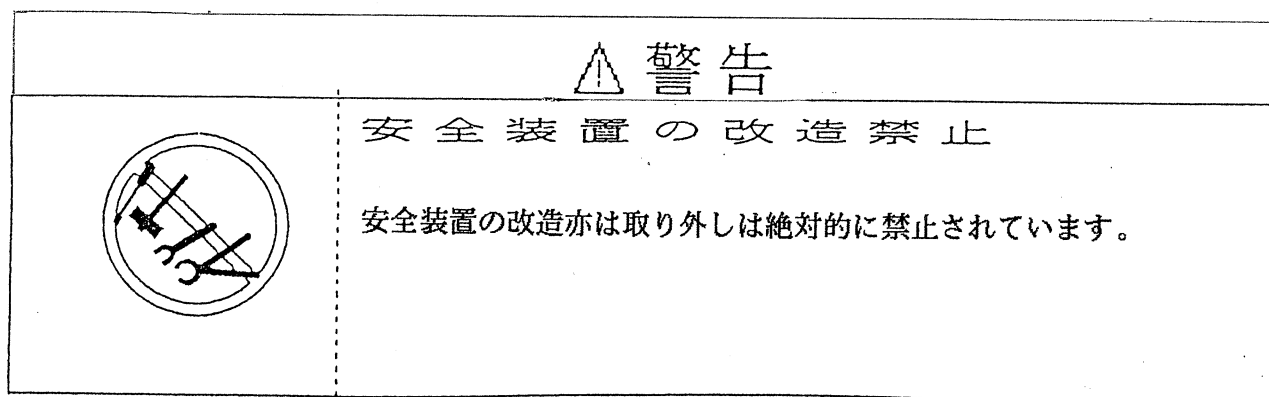 ⚠警告
安全装置の改造禁止
安全装置の改造亦は取り外しは絶対的に禁止されています。